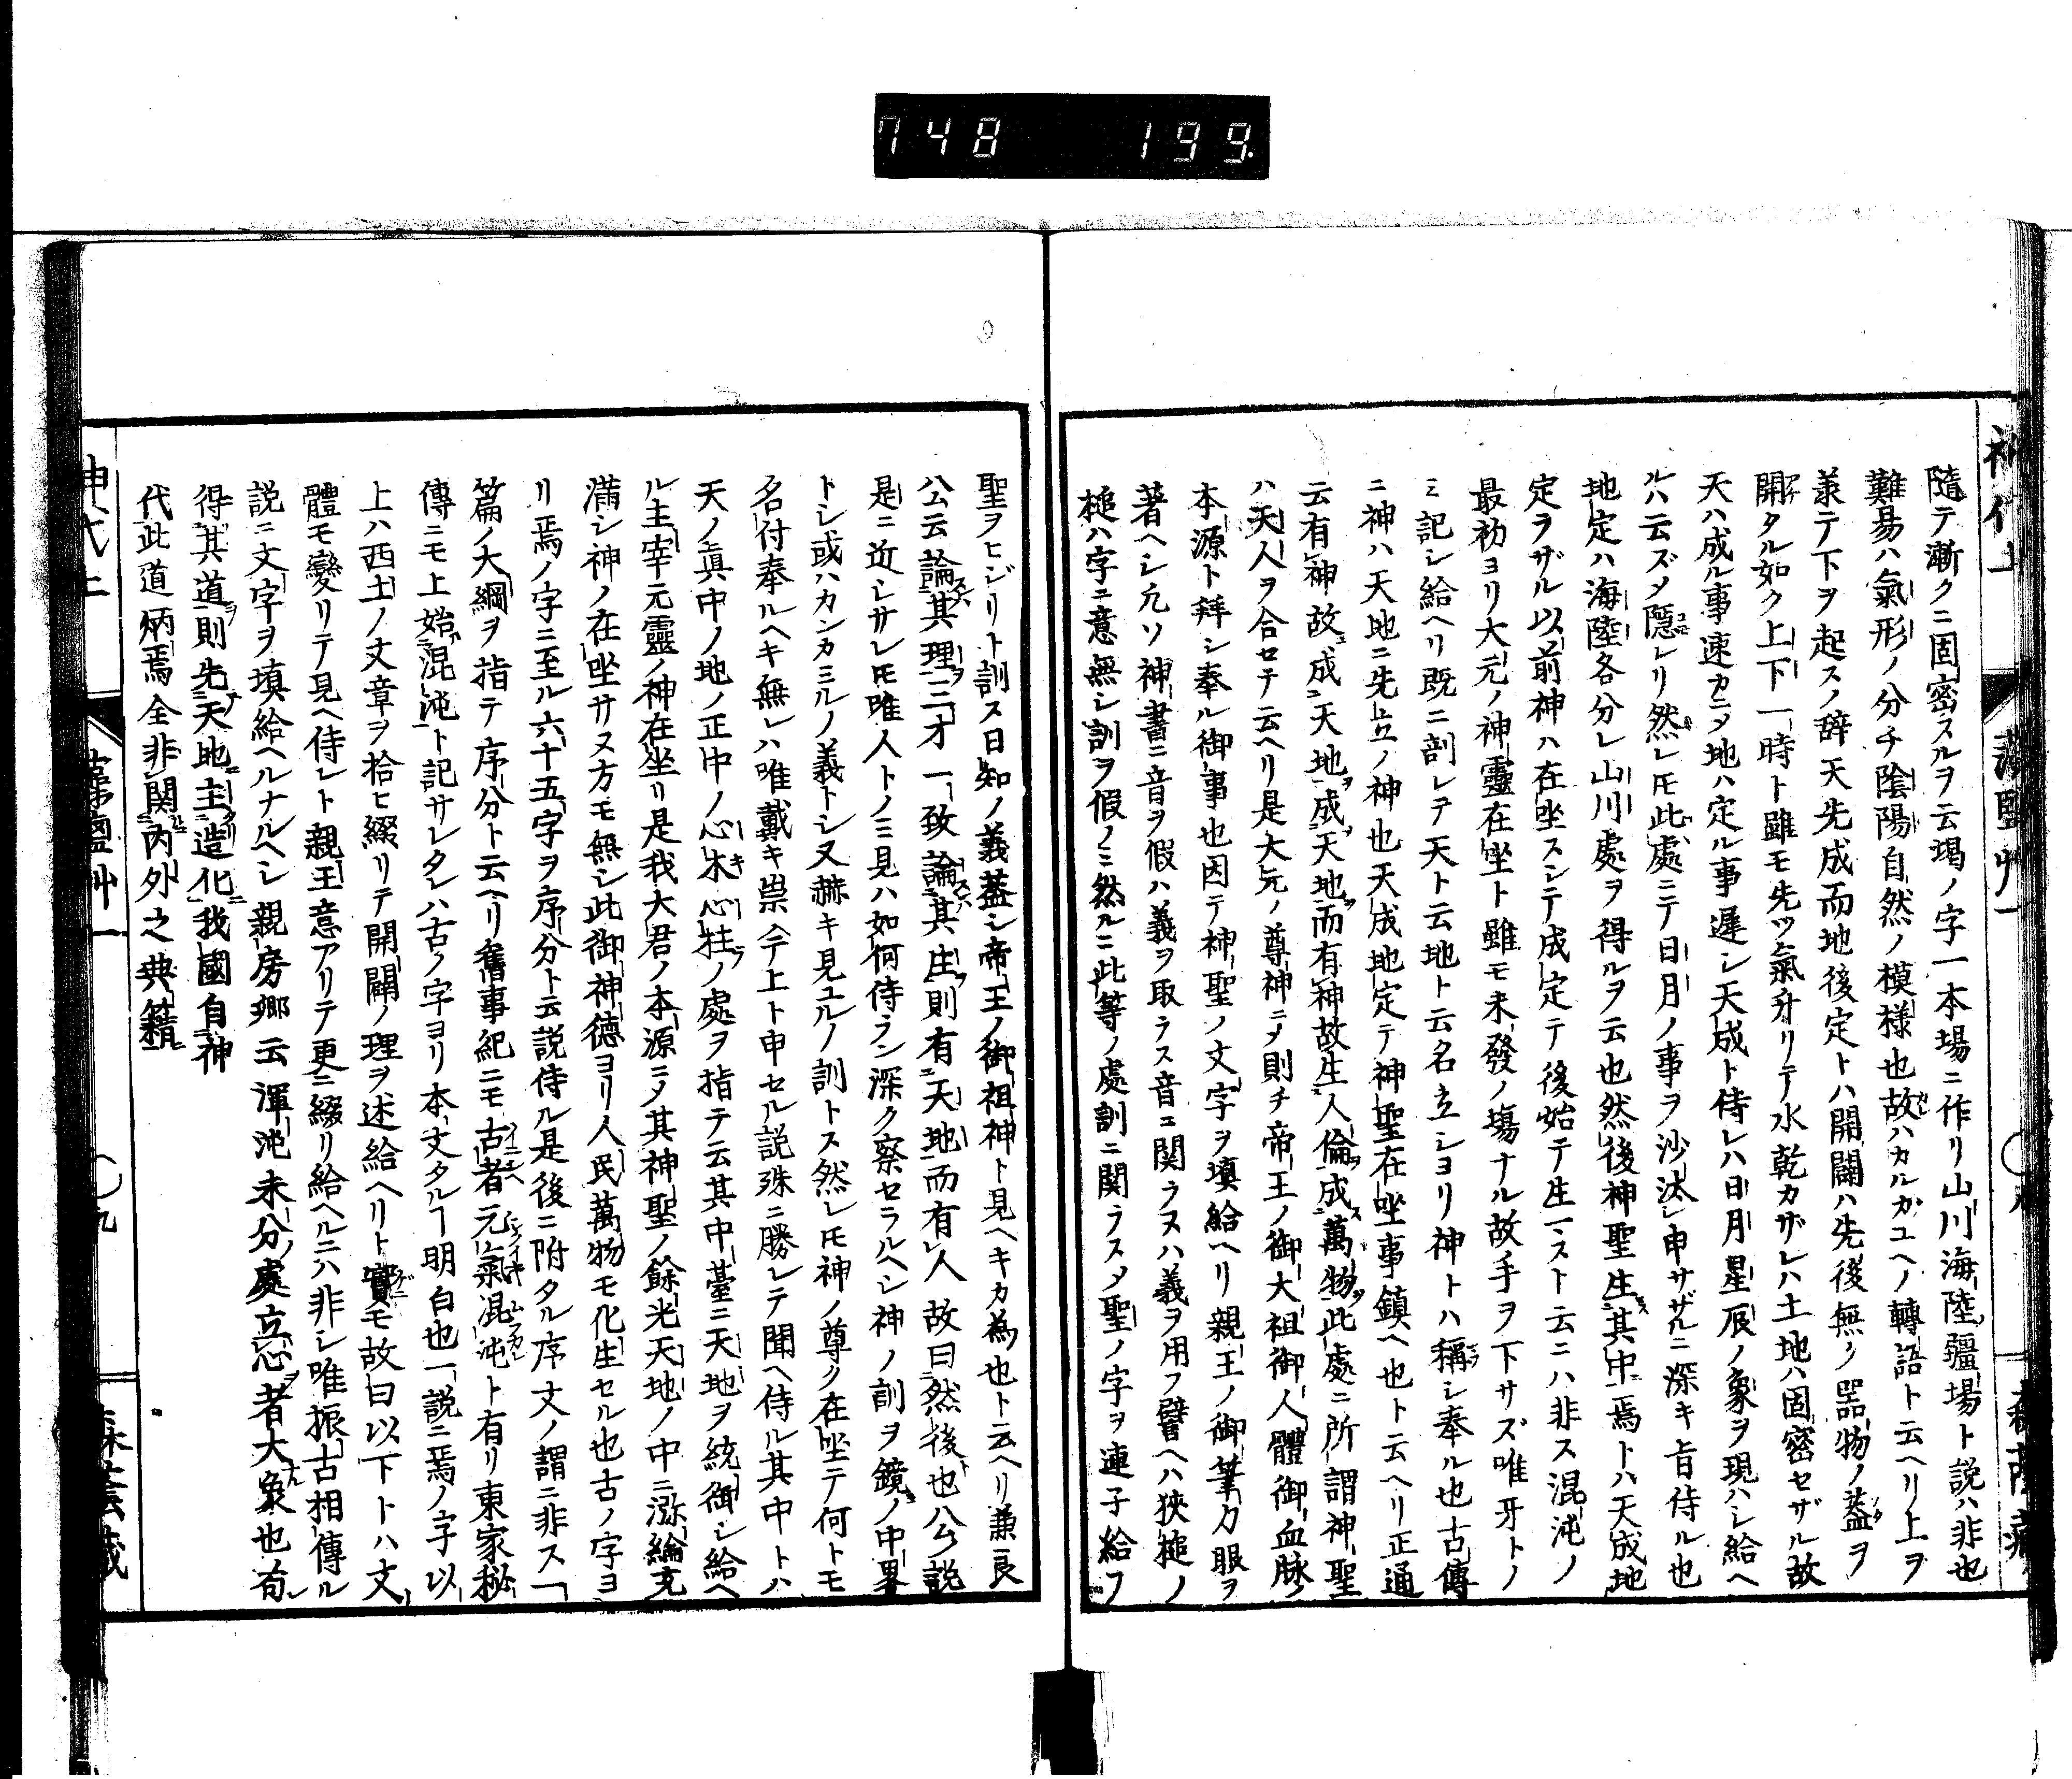 748 199.
隨テ漸クニ固密スルヲ云場ノ字一本場ニ作リ山川海陸疆場ト説ハ非也
難易ハ氣形ノ分チ陰陽自然ノ模樣也故ハカルガユヘノ轉語ト云ヘリ上ヲ
羕テ下ヲ起スノ辞天先成而地後定トハ開闢ハ先後無ノ器物ノ蓋ヲ
開タル如ク上下一時ト雖モ先ツ氣升リテ水乾カザレハ土地ハ固密セザル故
天ハ成ル事速カニメ地ハ定ル事遲シ天成ト侍レハ日月星辰ノ象ヲ現ハシ給ヘ
ルハ云ズメ隱レリ然レモ此處ニテ日月ノ事ヲ沙汰申サザルニ深キ旨侍ル也
地定ハ海陸各分レ山川處ヲ得ルヲ云也然後神聖生其中焉トハ天成地
定ヲザル以前神ハ在坐スシテ成定テ後始テ生一スト云ニハ非ス混沌ノ
最初ヨリ大元ノ神靈在坐ト雖モ未發ノ場ナル故手ヲ下サズ唯牙トノ
ミ記シ給ヘリ既ニ剖レテ天ト云地ト云名立シヨリ神トハ稱シ奉ル也古傳
ニ神ハ天地ニ先立ノ神也天成地定テ神聖在坐事鎭ヘ也ト云ヘリ正通
云有神故成天地成天地而有神故生人倫成萬物此處ニ所謂神聖
ハ天人ヲ合セテ云ヘリ是大元ノ尊神ニメ則チ帝王ノ御大祖御人體御血脉
本源ト拜シ奉ル御事也因テ神聖ノ文字ヲ填給ヘリ親王ノ御筆力眼ヲ
著ヘシ凢ソ神書ニ音ヲ假ハ義ヲ取ラス音ニ関ラヌハ義ヲ用フ譬ヘハ狹槌ノ
槌ハ字ニ意無シ訓ヲ假ノミ然ルニ此等ノ處訓ニ関ラスメ聖ノ字ヲ連子給フ
聖ヲヒジリト訓ス日知ノ義葢シ帝王ノ御祖神ト見ヘキカ為也ト云ヘリ兼良
公云論其理三才一致論其生則有天地而有人故曰然後也公説
是ニ近シサレモ唯人トノミ見ハ如何侍ラン深ク察セラルヘシ神ノ訓ヲ鏡ノ中畧
トシ或ハカンカミルノ義トシ又赫キ見ユルノ訓トス然レモ神ノ尊ク在坐テ何トモ
名付奉ルヘキ無レハ唯戴キ崇ヘテ上ト申セル説殊ニ勝レテ聞ヘ侍ル其中トハ
天ノ眞中ノ地ノ正中ノ心木心柱ノ處ヲ指テ云其中臺ニ天地ヲ統御シ給ヘ
ル主宰元靈ノ神在坐リ是我大君ノ本源ニメ其神聖ノ餘光天地ノ中ニ瀰綸充
滿シ神ノ在坐サヌ方モ無シ此御神德ヨリ人民萬物モ化生セル也古ノ字ヨ
リ焉ノ字ニ至ル六十五字ヲ序分ト云説侍ル是後ニ附タル序文ノ謂ニ非ス一
篇ノ大綱ヲ指テ序分ト云ヘリ舊事紀ニモ古者元氣混沌ト有リ東家秘
傳ニモ上始混沌ト記サレタレハ古ノ字ヨリ本文タルヿ明白也一説ニ焉ノ字以
上ハ西土ノ文章ヲ拾ヒ綴リテ開闢ノ理ヲ述給ヘリト實モ故曰以下トハ文
體モ變リテ見ヘ侍レト親王意アリテ更ニ綴リ給ヘルニハ非シ唯振古相傳ル
説ニ文字ヲ填給ヘルナルヘシ親房郷云渾沌未分處立心者大象也苟
得其道則先天地主造化我國自神
代此道炳焉全非関内外之典籍
神代上 藻鹽艸一 ○九 森蔭蔵